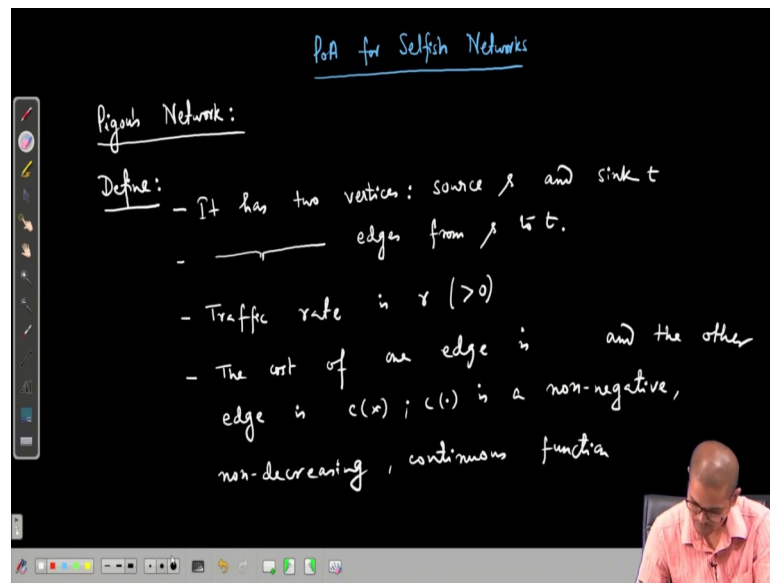 PoA for Selfish Networks
Pigou's Network:
Define: - It has two vertices: source s and sink t
- edges from s to t.
- Traffic rate is r (>0)
- The cost of one edge is and the other
edge is c(x) ; c(.) is a non-negative,
non-decreasing, continuous function